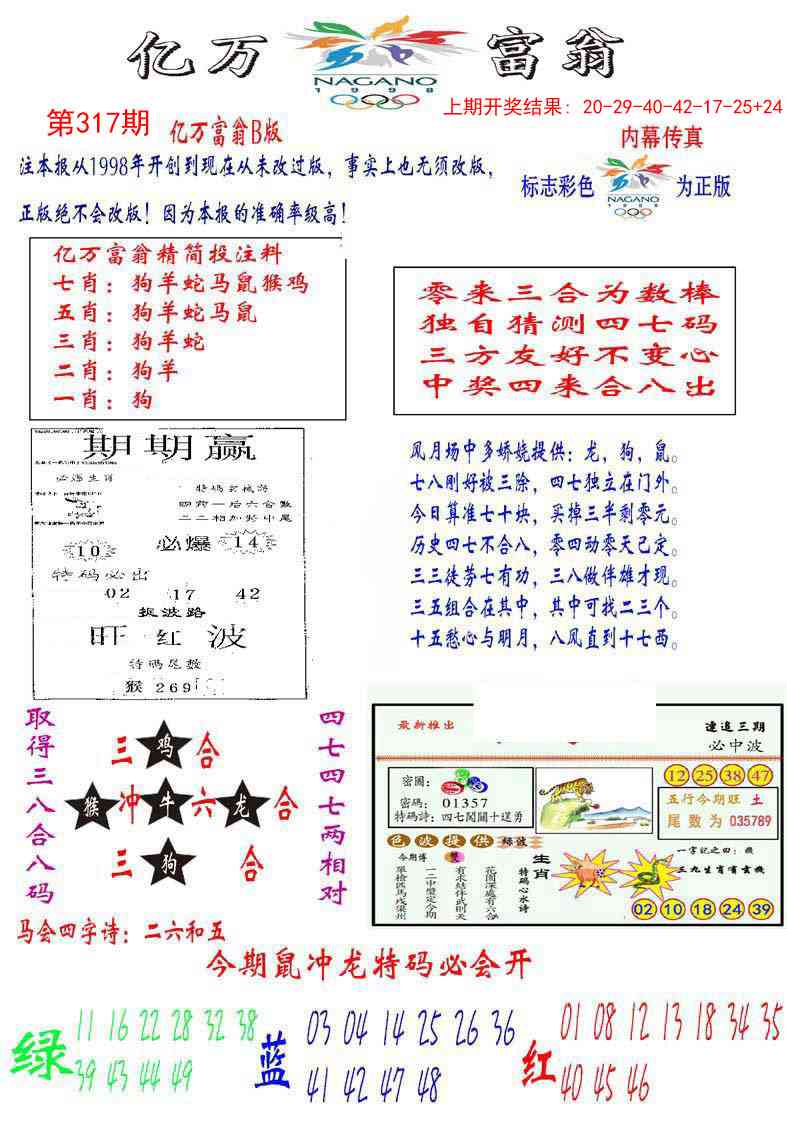 亿万富翁
NAGANO
1998
第317期
亿万富翁B版
上期开奖结果：20-29-40-42-17-25+24
内幕传真
注本报从1998年开创到现在从未改过版，事实上也无须改版，
正版绝不会改版！因为本报的准确率级高！
标志彩色
NAGANO
1998
为正版
亿万富翁精简投注料
七肖：狗羊蛇马鼠猴鸡
五肖：狗羊蛇马鼠
三肖：狗羊蛇
二肖：狗羊
一肖：狗
零来三合为数棒
独自猜测四七码
三方友好不变心
中奖四来合八出
期期赢
必爆生肖
10
必爆
14
特码必出
02 17 42
捉波路
旺 红 波
特碼尾数
猴 269
风月场中多娇娆提供：龙，狗，鼠。
七八刚好被三除，四七独立在门外。
今日算准七十块，买掉三半剩零元。
历史四七不合八，零四动零天已定。
三三徒劳七有功，三八做伴雄才现。
三五组合在其中，其中可找二三个。
十五愁心与明月，八风直到十七西。
取得三八合八码
三鸡合
猴冲牛六龙合
三狗合
四七四七两相对
最新推出
連追三期
必中波
密圖：
密碼： 01357
特码詩：四七闖關十逞勇
12 25 38 47
五行今期旺 土
尾数为 035789
色波提供 绿波
今期博 雙
單槍匹馬戍梁州
一二中雙定今期
有求結伴武則天
花園深處有六合
特码心水诗
生肖
一字記之曰：機
三九生肖有玄機
02 10 18 24 39
马会四字诗：二六和五
今期鼠冲龙特码必会开
绿
11 16 22 28 32 38
39 43 44 49
蓝
03 04 14 25 26 36
41 42 47 48
红
01 08 12 13 18 34 35
40 45 46